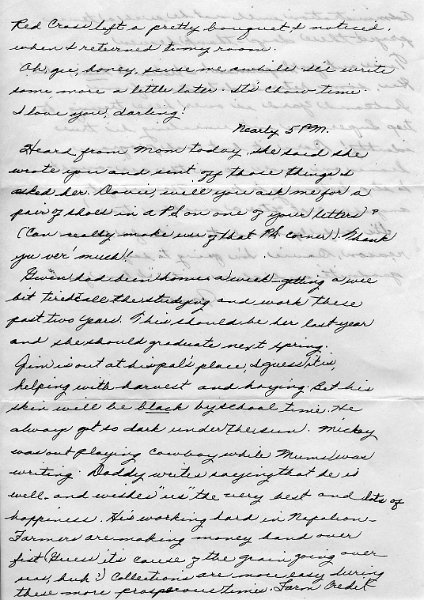 Red Cross left a pretty bouquet, I noticed,
when I returned to my room.
Oh, gee, honey, 'scuse me awhile. I'll write
some more a little later. It's chow time.
I love you, darling!
Nearly 5 P.M.
Heard from Mom today. She said she
wrote you and sent off those things I
asked her. Davie, will you ask me for a
pair of shoes in a P.S. on one of your letters?
(Can really make use of that P.S. corner). Thank
you ver' much!
Gwen had been home a week - getting a wee
bit tired - all the studying and work these
past two years. This should be her last year
and she should graduate next spring.
Jim is out at his pal's place, I guess it is,
helping with harvest and haying. Bet his
skin will be black by school time. He
always got so dark under the sun. Mickey
was out playing cowboy while Mums was
writing. Daddy writes saying that he is
well - and wishes "us" the very best and lots of
happiness. He's working hard in Napoleon -
Farmers are making money hand over
fist (Guess it's cause of the grain going over-
seas, huh?) Collections are more easy during
these more prosperous times. Farm Credit